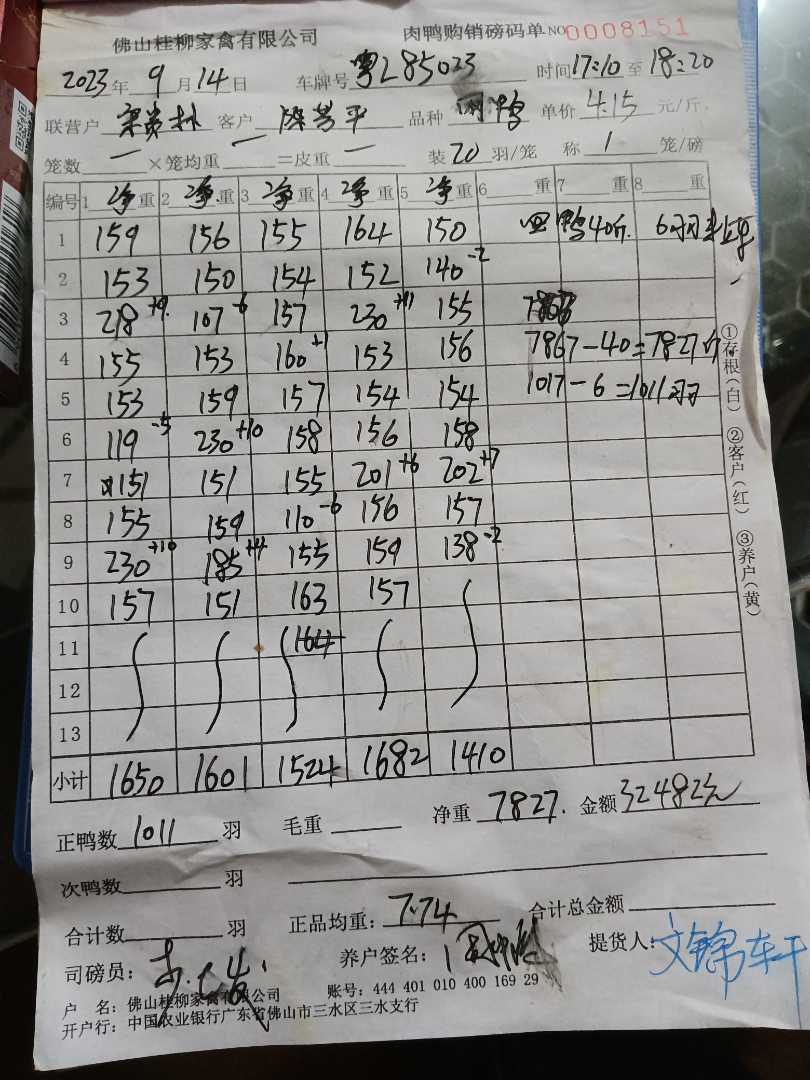 佛山桂柳家禽有限公司 肉鸭购销磅码单 NO 0008151
2023年 9月14日 车牌号 粤L85023 时间17:10至18:20
联营户 客户 品种 单价 4.15 元/斤
笼数 一 ×笼均重 一 =皮重 一 装20羽/笼 称 1 笼/磅
编号 1 净重 2 净重 3 净重 4 净重 5 净重 6 重 7 重 8 重
1 159 156 155 164 150 鸭40斤. 6羽
2 153 150 154 152 140-2
3 218+9 107-6 157 230+11 155
4 155 153 160+1 153 156 7867-40=7827斤
5 153 159 157 154 154 1017-6=1011羽
6 119-5 230+10 158 156 158
7 151 151 155 201+6 202+7
8 155 159 110-6 156 157
9 230+10 185+4 155 159 138-2
10 157 151 163 157
11 164
12
13
小计 1650 1601 1524 1682 1410
正鸭数 1011 羽 毛重 净重 7827. 金额 32482元
次鸭数 羽
合计数 羽 正品均重: 7.74 合计总金额
司磅员: 养户签名: 提货人:
户 名: 佛山桂柳家禽有限公司 账号: 444 401 010 400 169 29
开户行: 中国农业银行广东省佛山市三水区三水支行
①存根(白) ②客户(红) ③养户(黄)